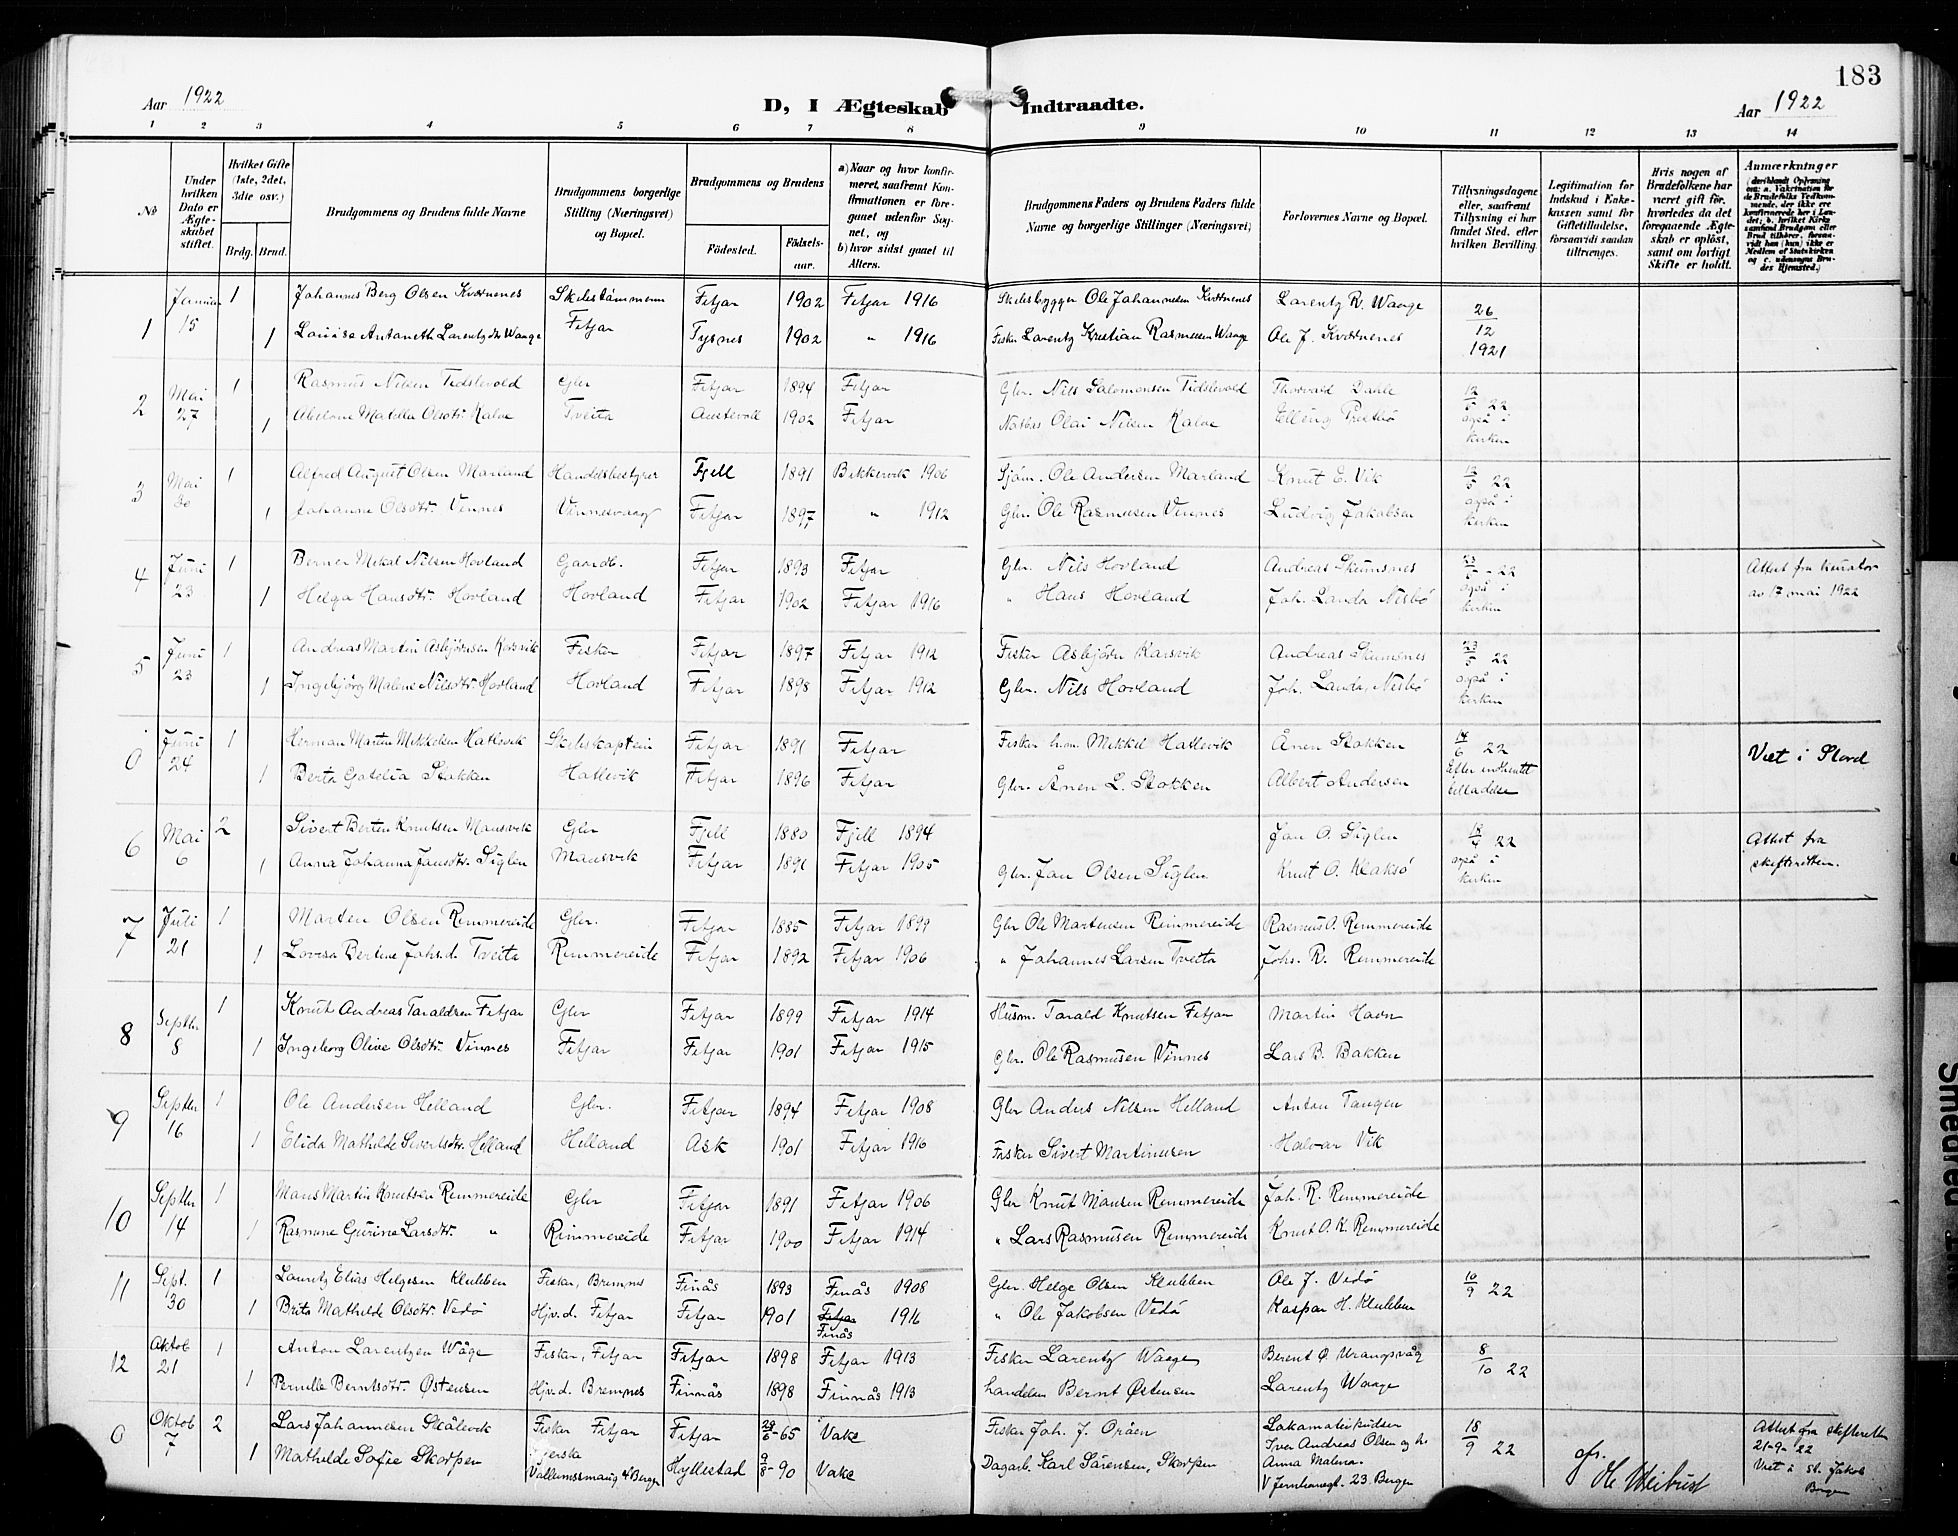 183
Aar 1922
D, I Ægteskab Indtraadte.
Aar 1922
1 2 3 4 5 6 7 8 9 10 11 12 13 14
No
Under hvilken Dato er Ægteskabet stiftet.
Hvilket Gifte (1ste, 2det, 3die osv.)
Brdg. Brud.
Brudgommens og Brudens fulde Navne
Brudgommens borgerlige Stilling (Næringsvei) og Bopæl.
Brudgommens og Brudens
Fødested. Fødselsaar.
a) Naar og hvor konfirmeret, saafremt Konfirmationen er foregaaet udenfor Sognet, og
b) hvor sidst gaaet til Alters.
Brudgommens Faders og Brudens Faders fulde Navne og borgerlige Stillinger (Næringsvei)
Forlovernes Navne og Bopæl.
Tillysningsdagene eller, saafremt Tillysning ei har fundet Sted, efter hvilken Bevilling.
Legitimation for Indskud i Enkekassen samt for Giftetilladelse, forsaavidt saadan tiltrænges.
Hvis nogen af Brudefolkene har været gift før, hvorledes da det foregaaende Ægteskab er opløst, samt om lovligt Skifte er holdt.
Anmærkninger
1 Januar 15 1 Johannes Berg Olsen Kvernenes Skibstømmerm Fitjar 1902 Fitjar 1916 Skibsbygger Ole Johannesen Kvernenes Larentz R. Waage 26/12 1921
1 Lovise Antoneth Larentzdtr Waage Fitjar Tysnes 1902 " 1916 Fisker Larentz Kristian Rasmussen Waage Ole J. Kvernenes
2 Mai 27 1 Rasmus Nilsen Tidslevold Gbr Fitjar 1894 Fitjar Gbr. Nils Salomonsen Tidslevold Thorvald Dahle 12/5 22 også i kirken
1 Abelone Malene Olsdtr. Kalve Tveita Austevoll 1902 Fitjar Olai Nilsen Kalve Elling Prestbø
3 Mai 30 1 Alfred August Olsen Marland Handelsbestyrer Fjell 1891 Bekkervik 1906 Sjøm. Ole Andersen Marland Knut E. Vik 12/5 22 også i kirken
1 Johanne Olsdtr. Vinnes Vinnesvaag Fitjar 1897 " 1912 Gbr. Ole Rasmussen Vinnes Ludvig Jakobsen
4 Juni 23 1 Berner Mikal Nilsen Hovland Gaardb. Fitjar 1893 Fitjar Gbr. Nils Hovland Andreas Skumsnes 23/5 - 22 også i kirken Attest fra kurator av 17 mai 1922
1 Helga Hansdtr. Hovland Hovland Fitjar 1902 Fitjar 1916 " Hans Hovland Joh. Landa Nesbø
5 Juni 23 1 Andreas Martin Asbjørnsen Korsvik Fisker Fitjar 1897 Fitjar 1912 Fisker Asbjørn Korsvik Andreas Skumsnes 23/5 22 også i kirken
1 Ingebjørg Malene Nilsdtr. Hovland Hovland Fitjar 1898 Fitjar 1912 Gbr. Nils Hovland Joh. Landa, Nesbø
0 Juni 24 1 Herman Martin Mikkelsen Hatlevik Skibskaptein Fitjar 1891 Fitjar Fisker h.m. Mikkel Hatlevik Ånen Stokken 14/6 22 Efter indhentet tilladelse Viet i Stord
1 Berta Gotelia Stokken Hatlevik Fitjar 1896 Fitjar Gbr. Ånen L. Stokken Albert Andersen
6 Mai 6 2 Sivert Berten Knutsen Mansvik Gbr Fjell 1880 Fjell 1894 Jan O. Siglen 18/4 22 også i kirken Attest fra skifteretten.
1 Anna Johanna Jansdtr. Siglen Mansvik Fitjar 1891 Fitjar 1905 Gbr. Jan Olsen Siglen Knut O. Klaksø
7 Juli 21 1 Marten Olsen Rimmereide Gbr. Fitjar 1885 Fitjar 1899 Gbr Ole Martensen Rimmereide Rasmus O. Rimmereide
1 Lovisa Bertine Johs.d. Tveita Rimmereide Fitjar 1892 Fitjar 1906 " Johannes Larsen Tveita Johs. R. Rimmereide
8 Septbr 8 1 Knut Andreas Taraldsen Fitjar Gbr Fitjar 1899 Fitjar 1914 Husm. Tarald Knutsen Fitjar Martin Havn
1 Ingeborg Olive Olsdtr. Vinnes Fitjar Fitjar 1901 Fitjar 1915 Gbr. Ole Rasmusen Vinnes Lars B. Bakken
9 Septbr 16 1 Ole Andersen Helland Gbr. Fitjar 1894 Fitjar 1908 Gbr Anders Nilsen Helland Anton Tangen
1 Elida Mathilde Sivertsdtr. Helland Helland Ask 1901 Fitjar 1916 Fisker Sivert Martinusen Halvar Vik
10 Septbr 14 1 Mans Martin Knutsen Rimmereide Gbr Fitjar 1891 Fitjar 1906 Gbr Knut Mansen Rimmereide Joh. R. Rimmereide
1 Rasmine Gurine Larsdtr. " Rimmereide Fitjar 1900 Fitjar 1914 " Lars Rasmusen Rimmereide Knut O. K. Rimmereide
11 Sept. 30 1 Lauritz Elias Helgesen Klubben Fisker, Bremnes Finås 1893 Finås 1908 Gbr. Helge Olsen Klubben Ole J. Vedø 10/9 22
1 Brita Mathilde Olsdtr Vedø Hjv.d. Fitjar Fitjar 1901 Fitjar Finås 1916 " Ole Jakobsen Vedø Kaspar H. Klubben
12 Oktob 21 1 Anton Larentzen Wåge Fisker, Fitjar Fitjar 1898 Fitjar 1913 Fisker Larentz Waage Berent Ø. Urangsvåg 8/10 22
1 Pernille Berntsdtr. Østensen Hjv.d. Bremnes Finnås 1898 Finnås 1913 Landelm Bernt Østensen Larentz Waage
0 Oktob 7 2 Lars Johannesen Skålevik Fisker Fitjar Fitjar 29/6-65 Vake Fisker Joh. J. Oråen 18/9 22 Attest fra skifteretten 21-9-22 Viet i St. Jakob Bergen
1 Mathilde Sofie Skorpen Hyllestad 9/8-90 Vake Dagarb. Karl Sørensen, Skorpen Iver Andreas Olsen og hs Anna Malena. 23. Bergen